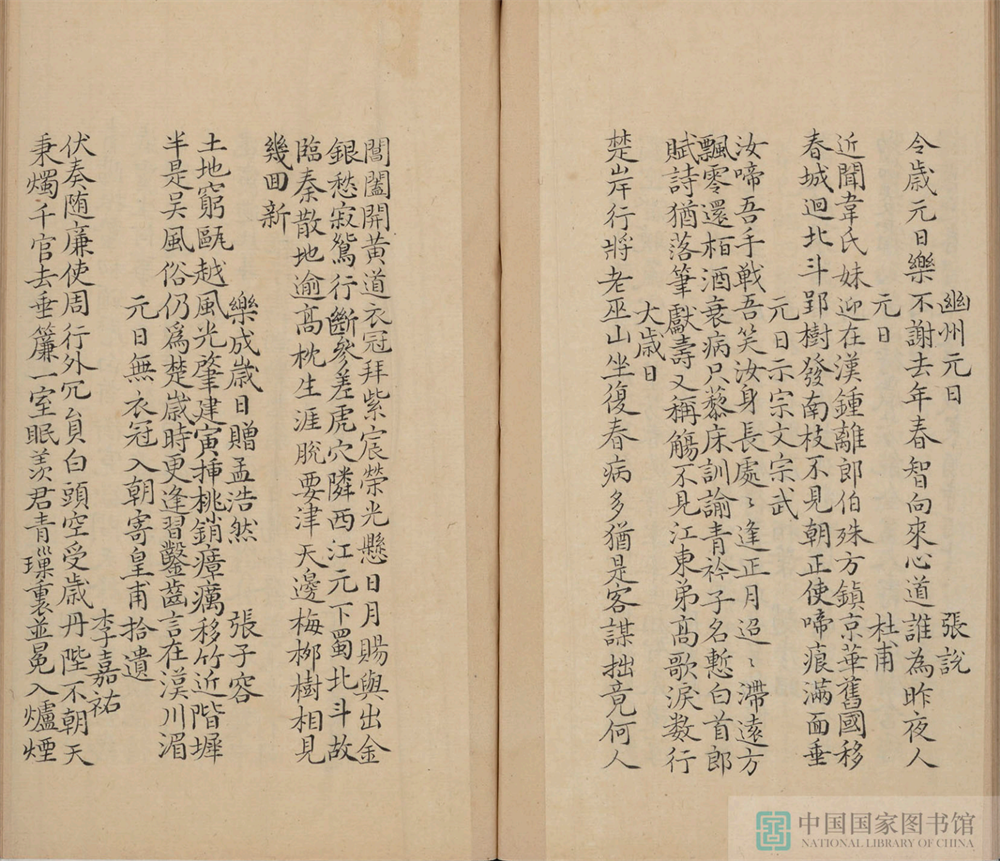 幽州元日 張說
今歲元日樂不謝去年春智向來心道誰為昨夜人
元日 杜甫
近聞韋氏妹迎在漢鍾離郎伯殊方鎮京華舊國移
春城迴北斗郢樹發南枝不見朝正使啼痕滿面垂
元日示宗文宗武
汝啼吾手戰吾笑汝身長處〻逢正月迢〻滯遠方
飄零還栢酒衰病只藜床訓諭青衿子名慙白首郎
賦詩猶落筆獻壽又稱觴不見江東弟高歌淚数行
大歲日
楚岸行將老巫山坐復春病多猶是客謀拙竟何人
閶闔開黃道衣冠拜紫宸榮光懸日月賜與出金
銀愁寂鴛行斷參差虎穴隣西江元下蜀北斗故
臨秦散地逾高枕生涯脫要津天邊梅栁樹相見
幾回新
樂成歲日贈孟浩然 張子容
土地窮甌越風光肇建寅插桃銷瘴癘移竹近階墀
半是吳風俗仍爲楚歲時更逢習鑿齒言在漢川湄
元日無衣冠入朝寄皇甫拾遺
李嘉祐
伏奏随廉使周行外冗貟白頭空受歲丹陛不朝天
秉燭千官去垂簾一室眠羨君青𤨏裏並冕入爐煙
中国国家图书馆
NATIONAL LIBRARY OF CHINA